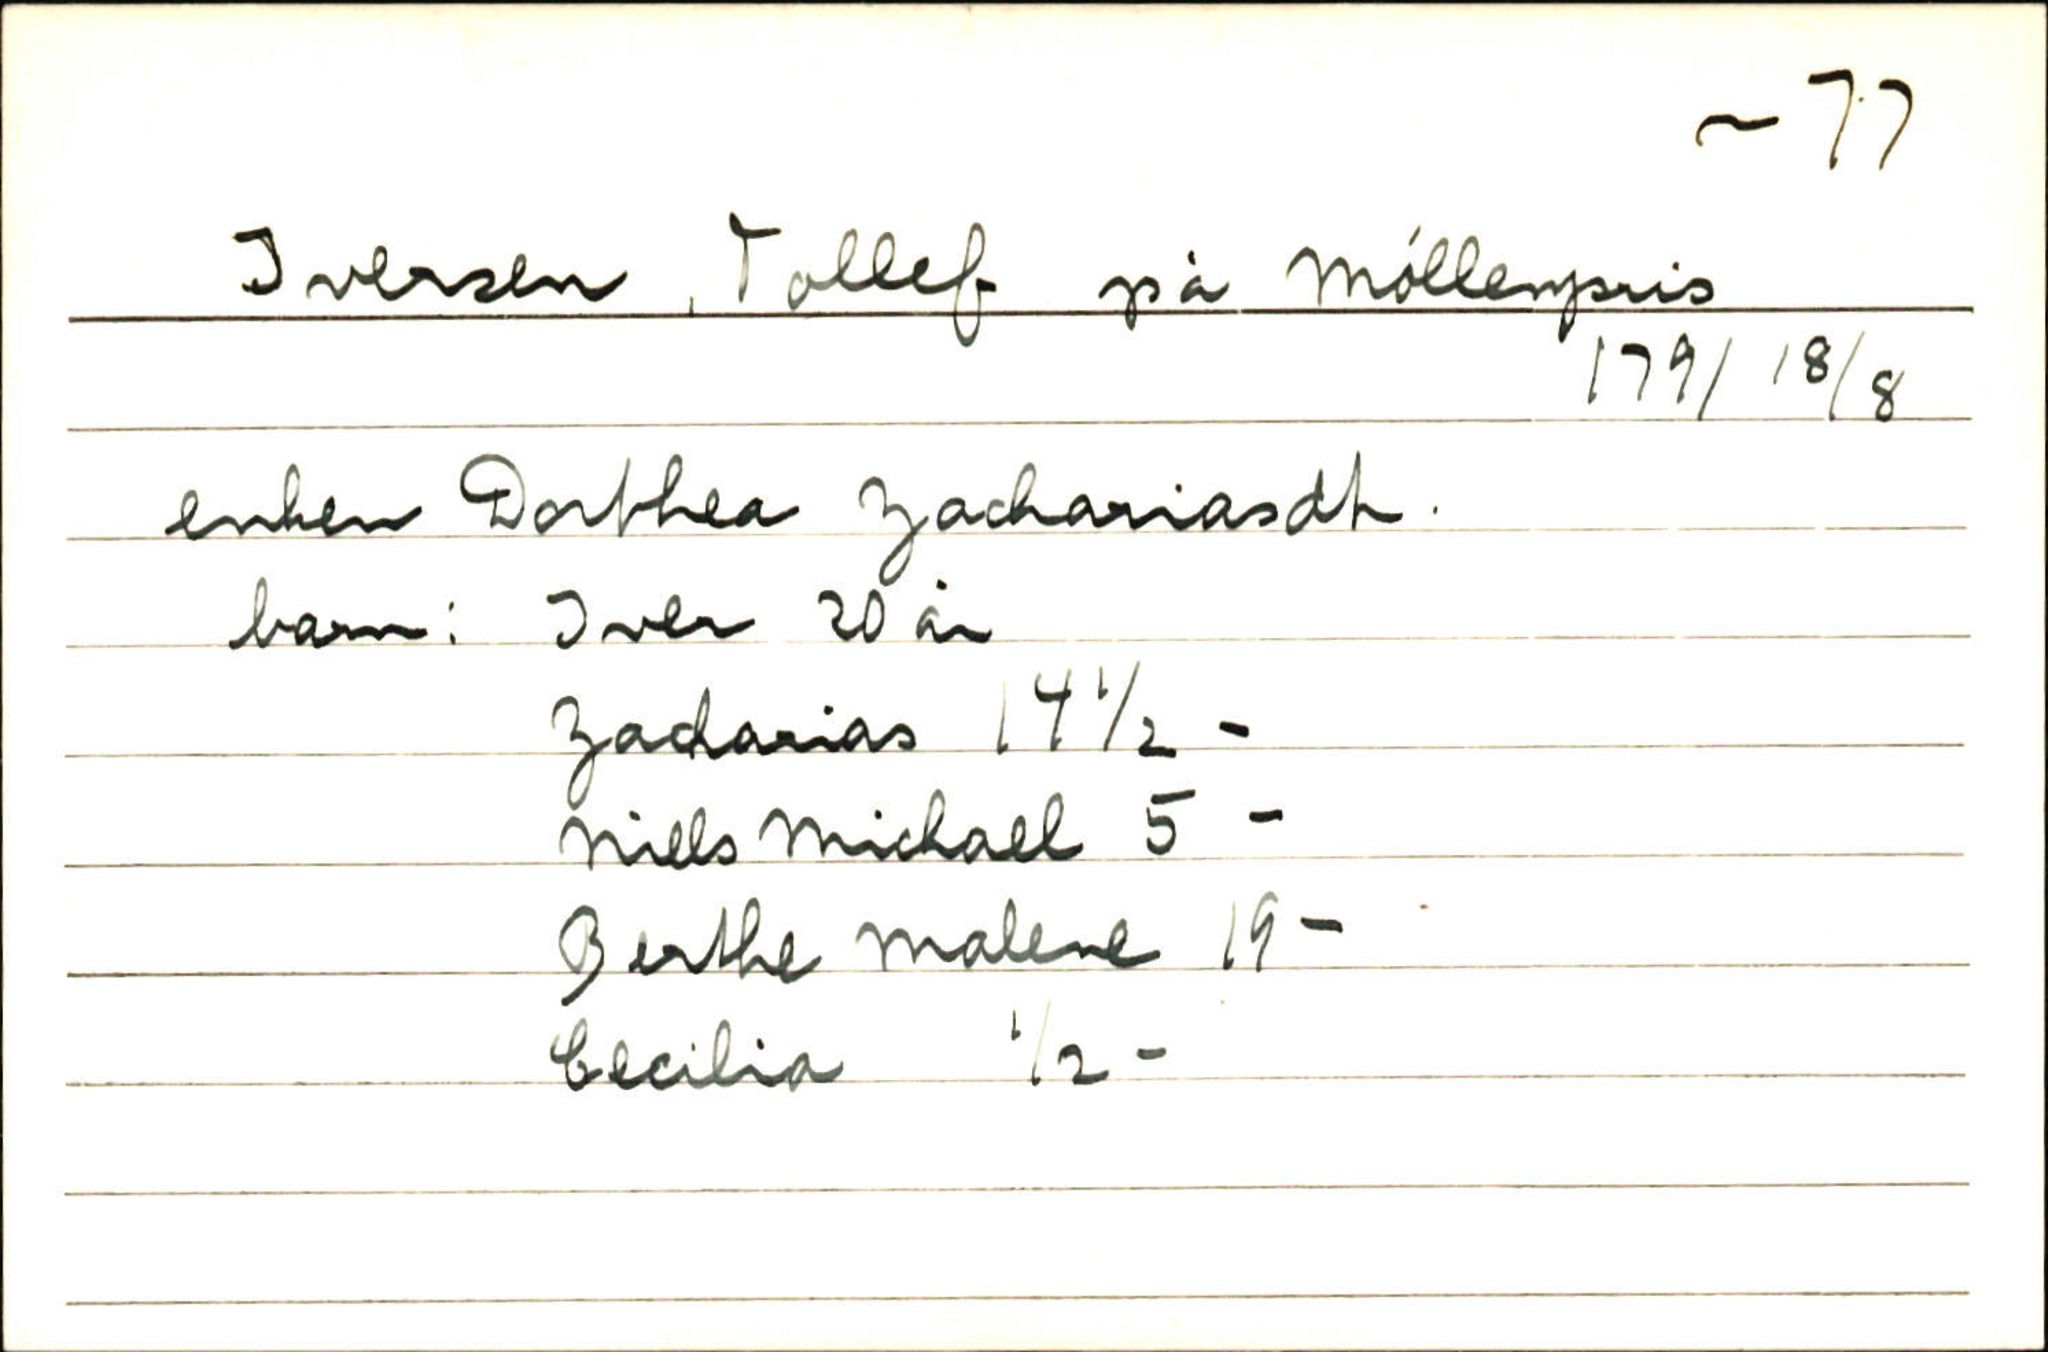 ~ 77
Iversen, Tollef på Móllenpris
179/ 18/8
enken Dorthea Zachariasdt.
barn: Iver 20 år
Zacharias 14 1/2 -
Niels Michael 5 -
Berthe Malene 19 -
Cecilia 1/2 -